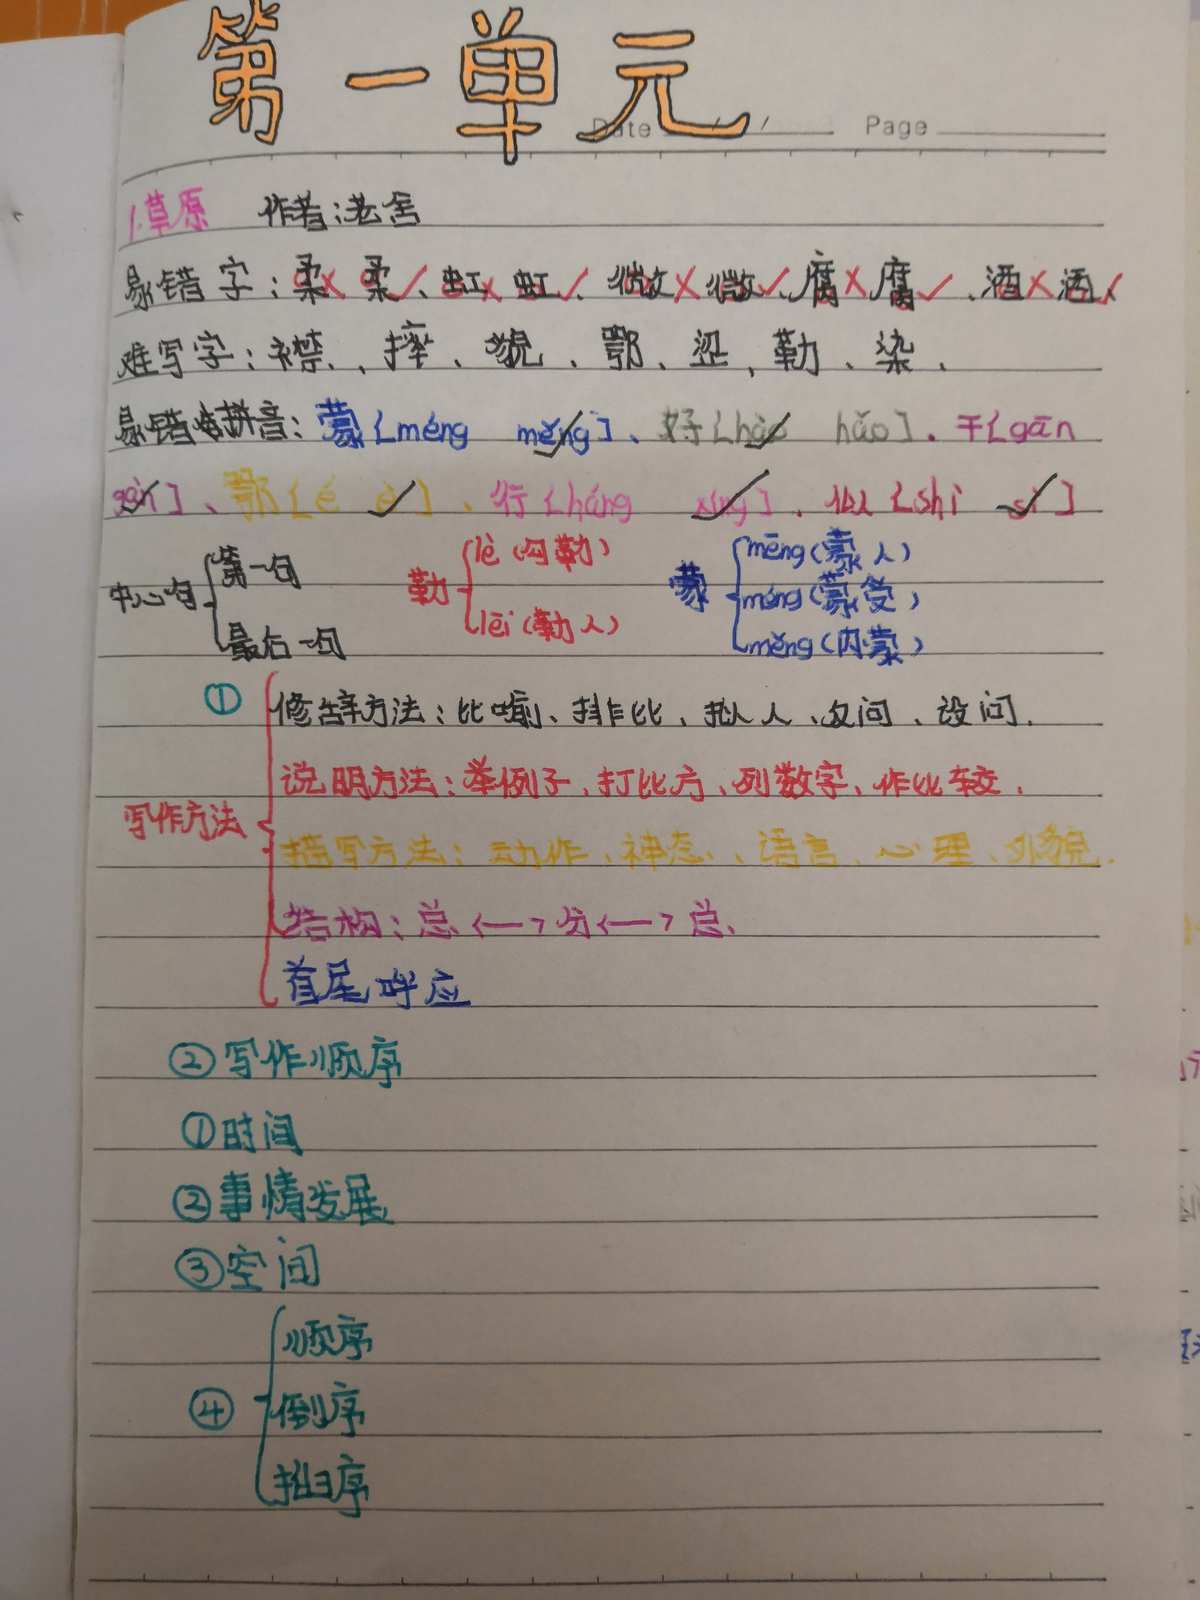 第一单元
Date / / Page
1.草原 作者:老舍
易错字:柔× 柔✓、虹× 虹✓、微× 微✓、腐× 腐✓、酒× 酒✓
难写字:襟、摔、貌、鄂、涩、勒、染、
易错拼音:蒙{méng měng]、好{hào hǎo]、干{gān
gàn]、鄂{é è]、行{háng xíng]、似{shì sì]
中心句 第一句 最后一句 勒 lè(勾勒) lēi(勒人) 蒙 mēng(蒙人) méng(蒙受) měng(内蒙)
①
写作方法
修辞方法:比喻、排比、拟人、反问、设问.
说明方法:举例子、打比方、列数字、作比较.
描写方法:动作、神态、语言、心理、外貌.
结构:总<—>分<—>总.
首尾呼应
②写作顺序
①时间
②事情发展
③空间
④
顺序
倒序
插序